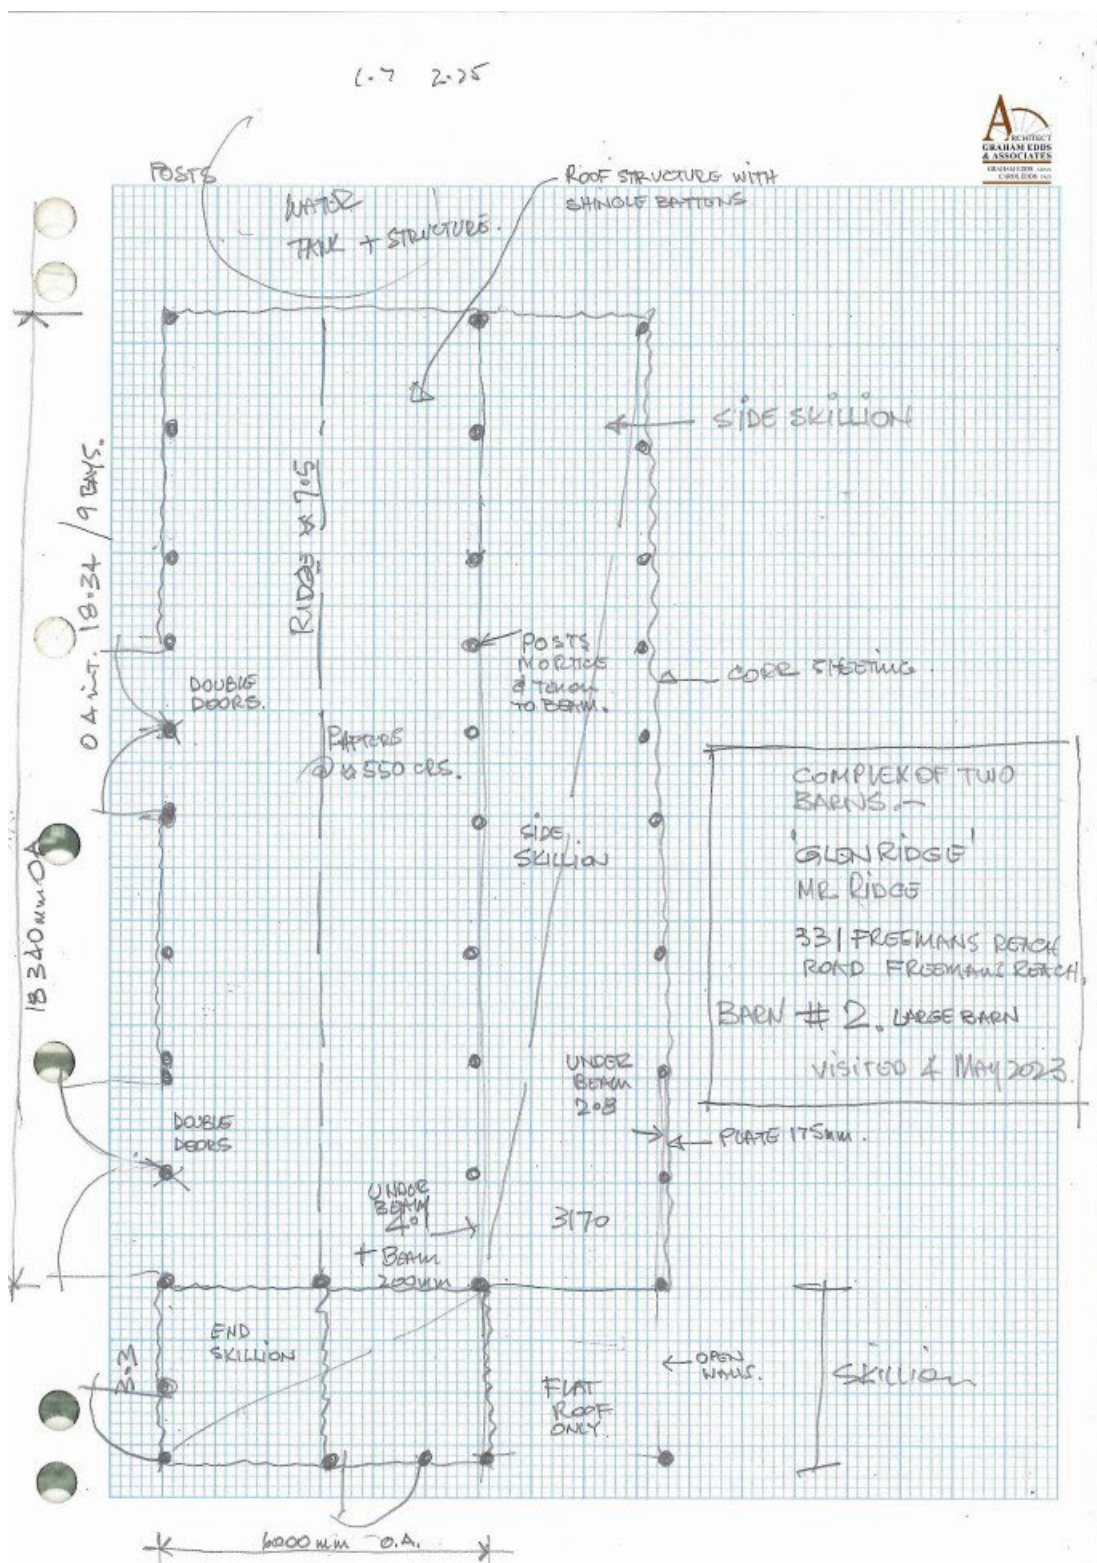 1.7 2.25
ARCHITECT
GRAHAM EDDS
& ASSOCIATES
POSTS
WATOR
TANK + STRUCTURE.
ROOF STRUCTURE WITH
SHINGLE BATTONS
SIDE SKILLION
RIDGE 7.05
O A INT. 18.34 / 9 BAYS.
18340mm OA
POSTS
MORTICE
& TENON
TO BEAM.
CORR SHEETING
DOUBLE
DOORS.
RAFTERS
@ 550 CRS.
SIDE
SKILLION
COMPLEX OF TWO
BARNS. -
'GLENRIDGE'
MR RIDGE
331 FREEMANS REACH
ROAD FREEMANS REACH.
BARN # 2. LARGE BARN
VISITED 4 MAY 2023.
UNDER
BEAM
2.08
PLATE 175mm.
DOUBLE
DOORS
UNDER
BEAM
+ BEAM
200mm
3170
END
SKILLION
3.3
FLAT
ROOF
ONLY.
OPEN
WALLS.
SKILLION
6000mm O.A.